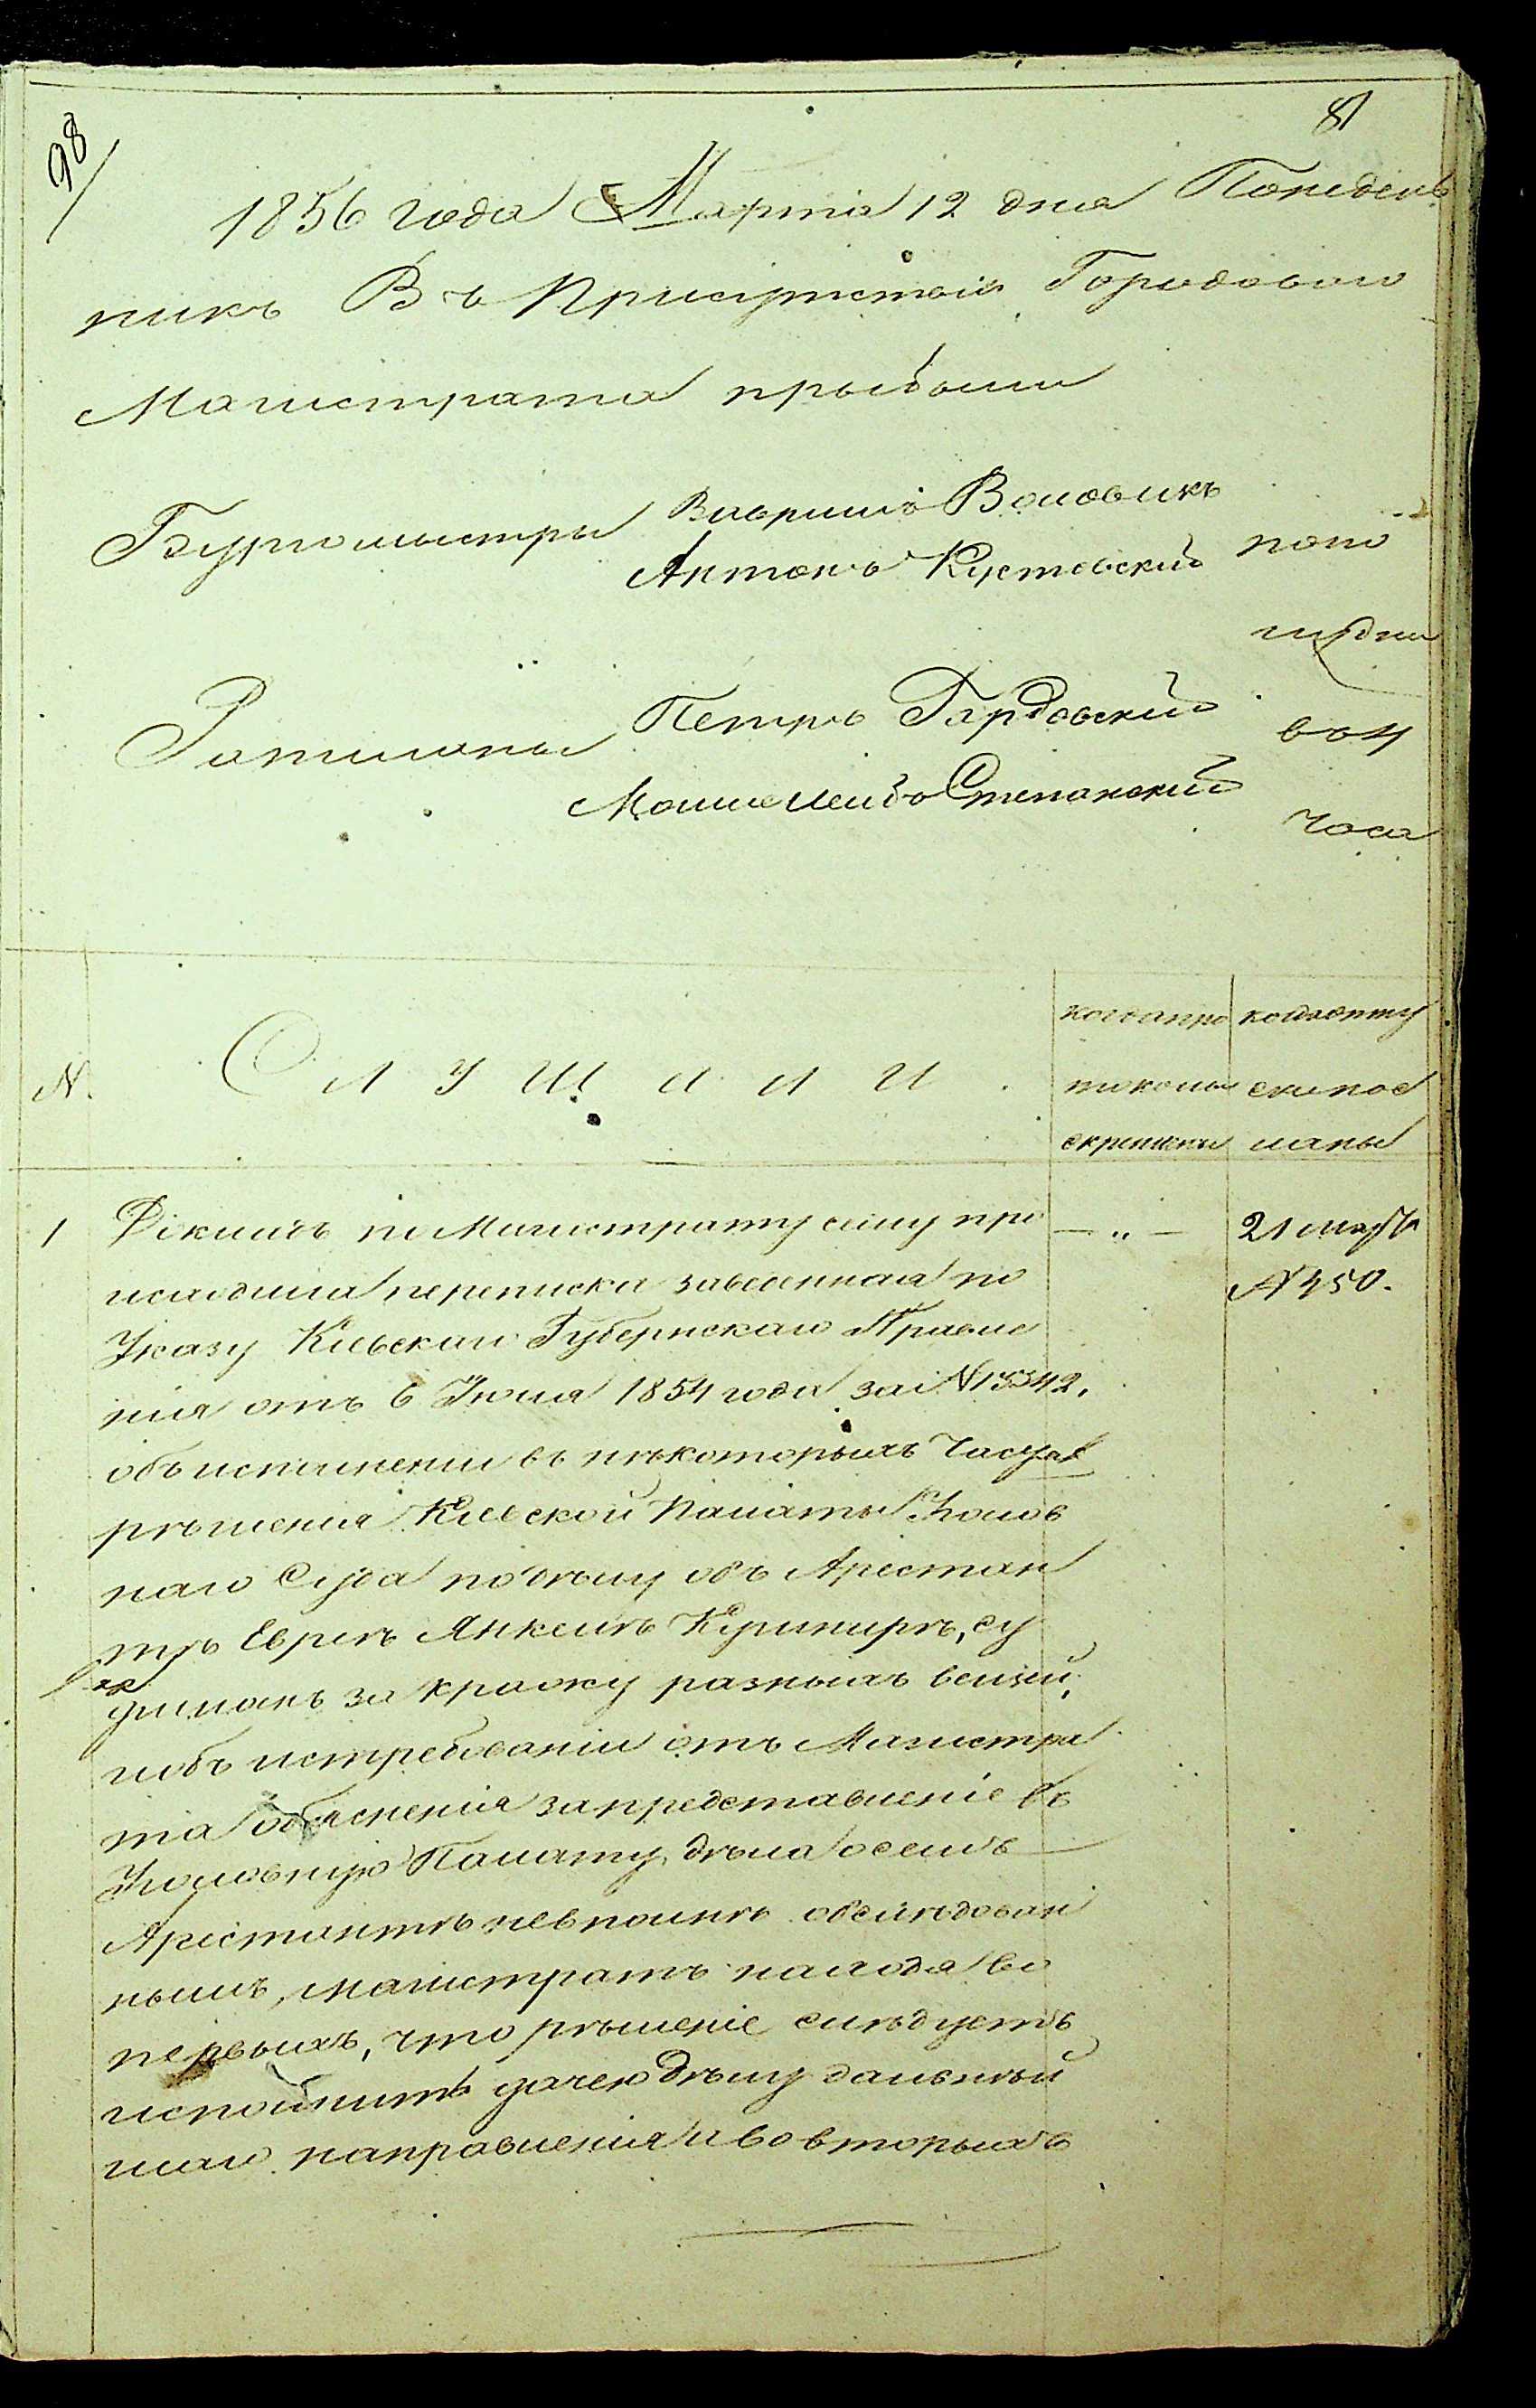 98
81
1856 года Марта 12 дня Понедель
никъ Въ Присутствіи Городоваго
Магистрата прыбыли
Бургомыстры Гаврыло Воловикъ
Антонъ Кустовскій попо
лудни
Ратманы Петръ Гардовскій въ 4
Мошко Лейба Степанскій часа
N.
Слушали.
когда про
токолы
скрепл
когда отпу
ски пос
ланы
1 Докладъ по Магистрату сему про
исходила переписка заведенная по
Указу Кіевскаго Губернскаго Правле
нія отъ 6 Іюля 1854 года за N 15342.
объ исполненіи въ нѣкоторыхъ частях
рѣшенія Кіевской Палаты Уголов
наго Суда по дѣлу объ Арестан
тѣ Евреѣ Янкелѣ Кушнирѣ, су
димомъ за кражу разныхъ вещей,
и объ истребованіи отъ Магистра
та объясненія за представленіе въ
Уголовную Палату дѣла о семъ
Арестантѣ не вполнѣ обслѣдован
нымъ, Магистратъ находя во
первыхъ, что рѣшеніе слѣдуетъ
исполнить дачею дѣлу дальнѣй
шаго направленія и во вторыхъ
— „ —
21 март
N 450.